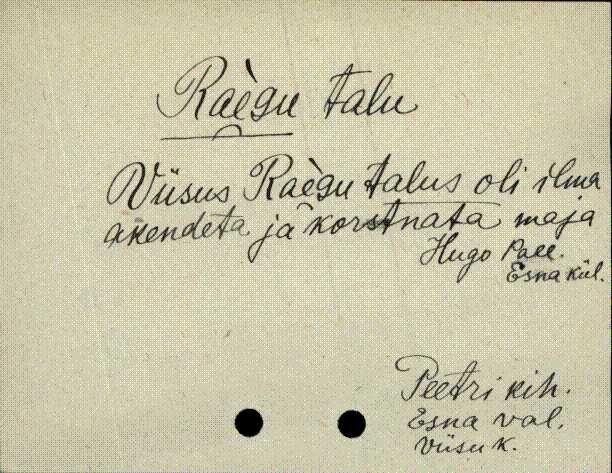 Raègu talu
Viisus Raègu talus oli ilma
akendeta ja korstnata maja
Hugo Pall.
Esna kül.
Peetri kih.
Esna val.
Viisu k.